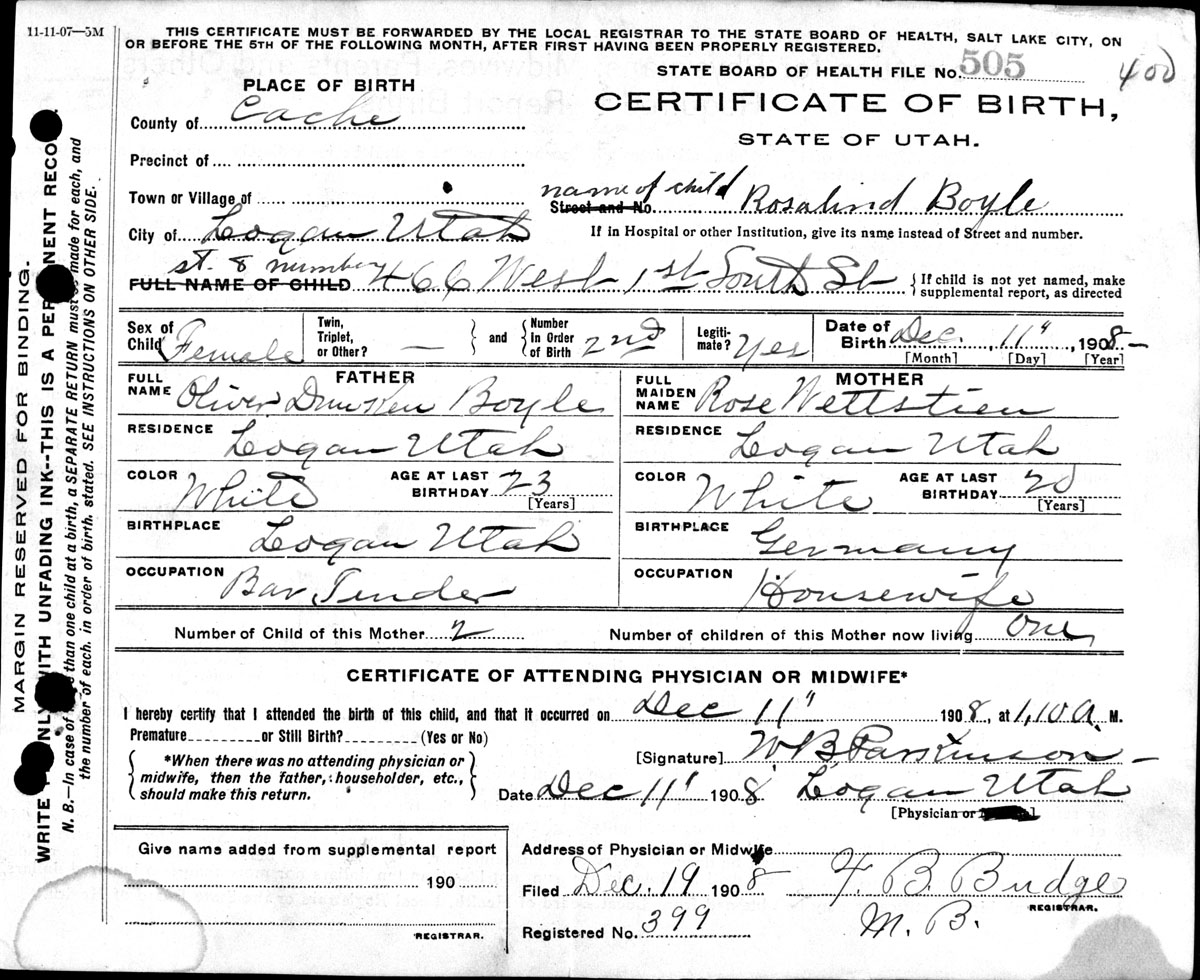 11-11-07—5M
THIS CERTIFICATE MUST BE FORWARDED BY THE LOCAL REGISTRAR TO THE STATE BOARD OF HEALTH, SALT LAKE CITY, ON
OR BEFORE THE 5TH OF THE FOLLOWING MONTH, AFTER FIRST HAVING BEEN PROPERLY REGISTERED.
STATE BOARD OF HEALTH FILE No. 505
400
PLACE OF BIRTH
CERTIFICATE OF BIRTH,
STATE OF UTAH.
County of Cache
Precinct of
Town or Village of
name of child
Street and No. Rosalind Boyle
City of Logan Utah
If in Hospital or other Institution, give its name instead of Street and number.
st. & number
FULL NAME OF CHILD 466 West 1st South St
{If child is not yet named, make
supplemental report, as directed
Sex of Child Female
Twin, Triplet, or Other? —
and
Number In Order of Birth 2nd
Legiti-mate? Yes
Date of Birth Dec. 11", 1908—
[Month] [Day] [Year]
FATHER
FULL NAME Oliver Duncken Boyle
RESIDENCE Logan Utah
COLOR White
AGE AT LAST BIRTHDAY 23
[Years]
BIRTHPLACE Logan Utah
OCCUPATION Bar Tender
MOTHER
FULL MAIDEN NAME Rose Wettstien
RESIDENCE Logan Utah
COLOR White
AGE AT LAST BIRTHDAY 20
[Years]
BIRTHPLACE Germany
OCCUPATION Housewife
Number of Child of this Mother 2
Number of children of this Mother now living One
CERTIFICATE OF ATTENDING PHYSICIAN OR MIDWIFE*
I hereby certify that I attended the birth of this child, and that it occurred on Dec 11" 1908, at 1,10 a. M.
Premature or Still Birth? (Yes or No)
[Signature] W B Parkinson —
*When there was no attending physician or
midwife, then the father, householder, etc.,
should make this return.
Date Dec 11" 1908 Logan Utah
[Physician or
Give name added from supplemental report
190
REGISTRAR.
Address of Physician or Midwife
Filed Dec. 19 1908 F B. Budge
REGISTRAR.
M. B.
Registered No. 399
MARGIN RESERVED FOR BINDING.
WRITE ONLY WITH UNFADING INK--THIS IS A PERMANENT RECO
N. B.—In case of more than one child at a birth, a SEPARATE RETURN must be made for each, and
the number of each, in order of birth, stated. SEE INSTRUCTIONS ON OTHER SIDE.